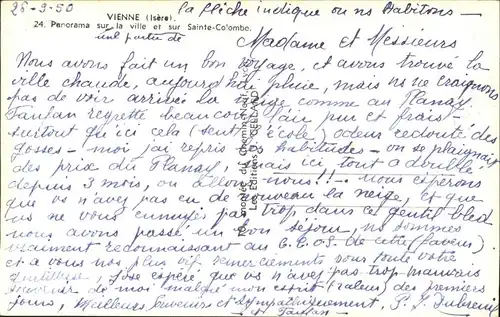 26-9-50 la flèche indique où ns habitons -
VIENNE (Isère).
24. Panorama sur la ville et sur Sainte-Colombe.
une partie de
Madame et Messieurs
Nous avons fait un bon voyage, et avons trouvé la
ville chaude, aujourd'hui pluie, mais ns ne craignons
pas de voir arriver la neige comme au Planay.
Fanfan regrette beaucoup l'air pur et frais -
surtout qu'ici cela (sent l'école) odeur redouté des
gosses - moi j'ai repris mes habitudes - on se plaignait
des prix du Planay, mais ici tout a doublé
depuis 3 mois, où allons-nous!! - nous espérons
que vs n'avez pas eu de nouveau la neige, et que
vs ne vous ennuyez pas trop dans ce gentil bled
nous avons passé un bon séjour, ns sommes
vraiment au de cette (faveur)
et à vous nos plus vifs remerciements pour toute votre
gentillesse, j'ose espérer que vs n'avez pas trop mauvais
souvenir de moi malgré mon esprit (râleur) des premiers
jours, Meilleurs Souvenirs et sympathiquement, P. J. Dubreuil
et Fanfan